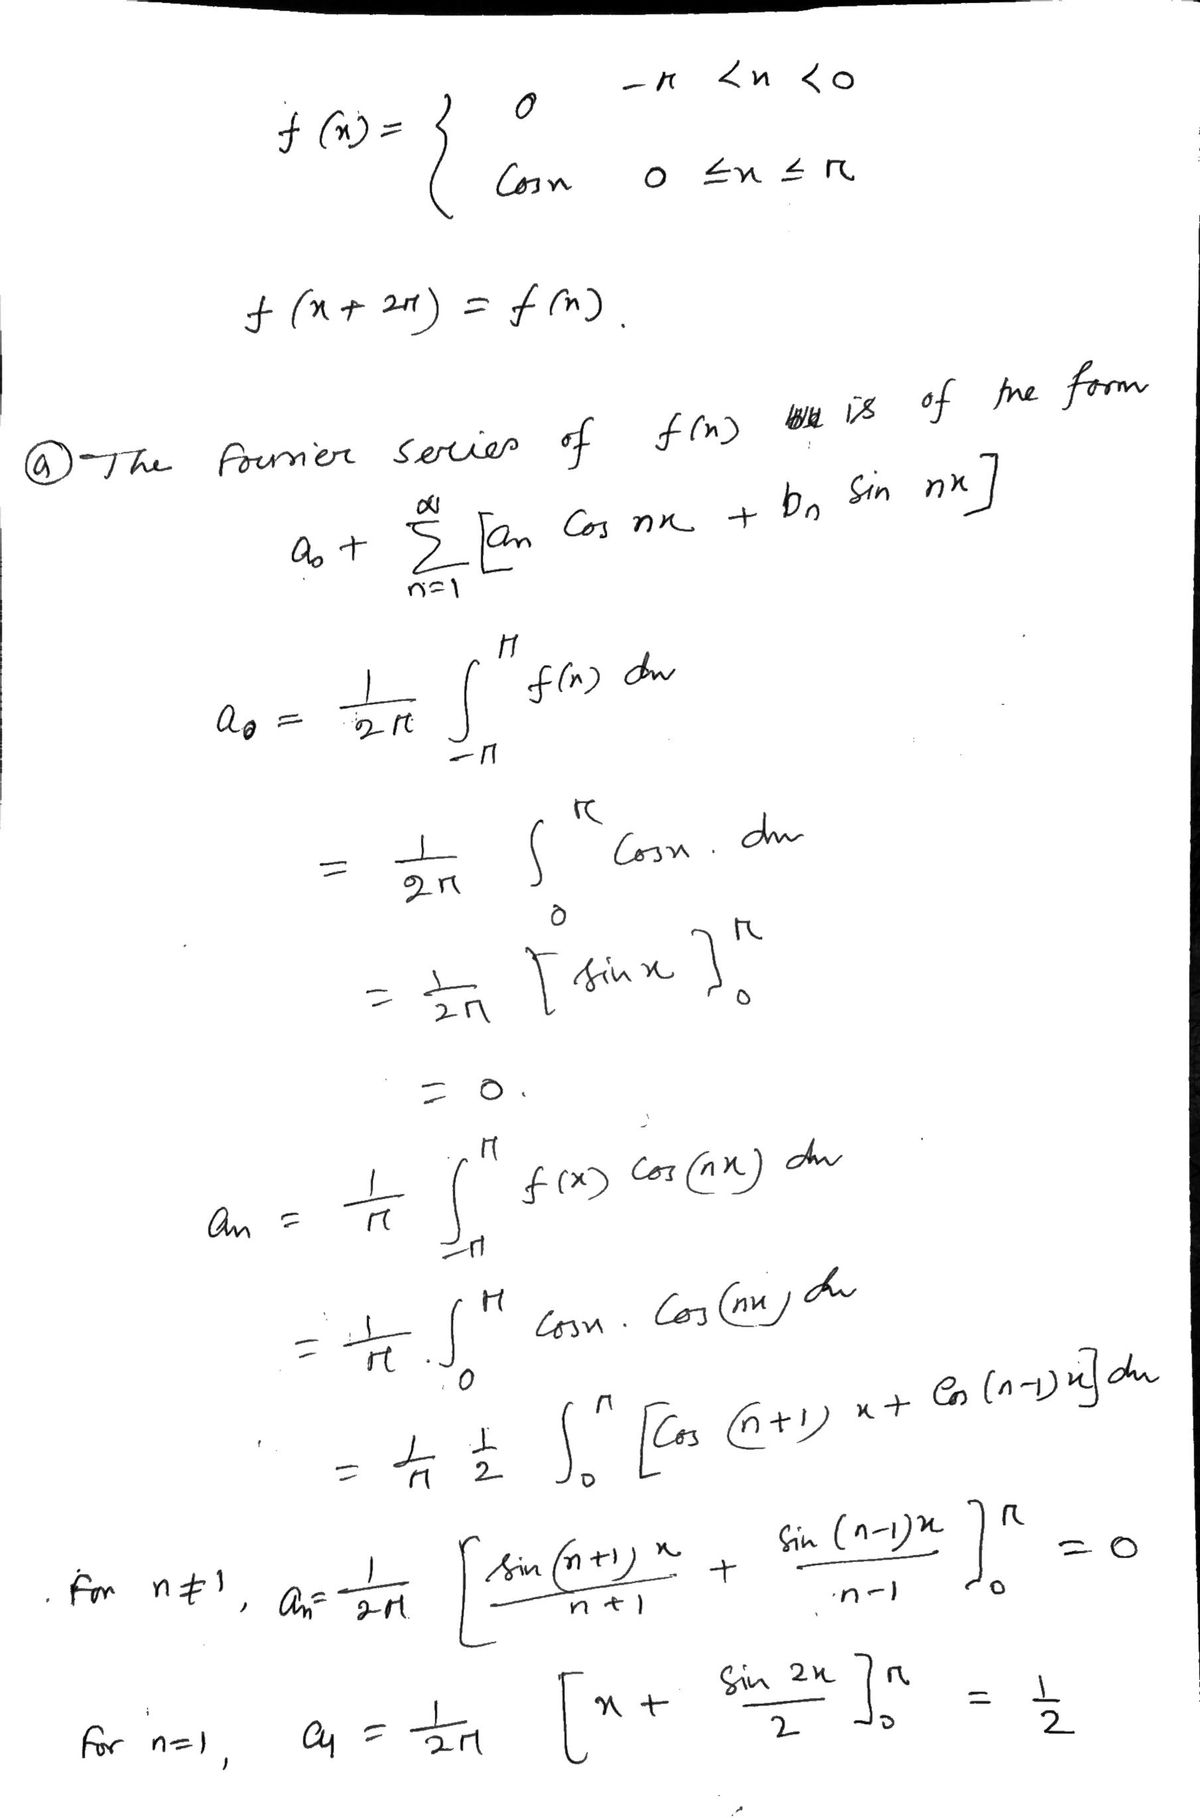 f(x) = { 0 -π < x < 0
Cosx 0 ≤ x ≤ π
f(x + 2π) = f(x).
(a) The fourier series of f(x) is of the form
a₀ + ∑_{n=1}^{∞} [an Cos nx + bn Sin nx]
a₀ = 1/2π ∫_{-π}^{π} f(x) dx
= 1/2π ∫_{0}^{π} Cosx . dx
= 1/2π [sin x]_{0}^{π}
= 0.
an = 1/π ∫_{-π}^{π} f(x) Cos(nx) dx
= 1/π . ∫_{0}^{π} Cosx . Cos(nx) dx
= 1/π 1/2 ∫_{0}^{π} [Cos (n+1) x + Cos (n-1) x] dx
For n≠1, an = 1/2π [sin (n+1) x / n+1 + Sin (n-1)x / n-1]_{0}^{π} = 0
For n=1, a₁ = 1/2π [x + Sin 2x / 2]_{0}^{π} = 1/2